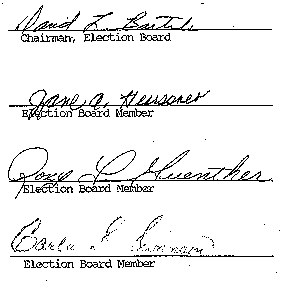 David L.
Chairman, Election Board
Jane A.
Election Board Member
L. Guenther
Election Board Member
Carla
Election Board Member